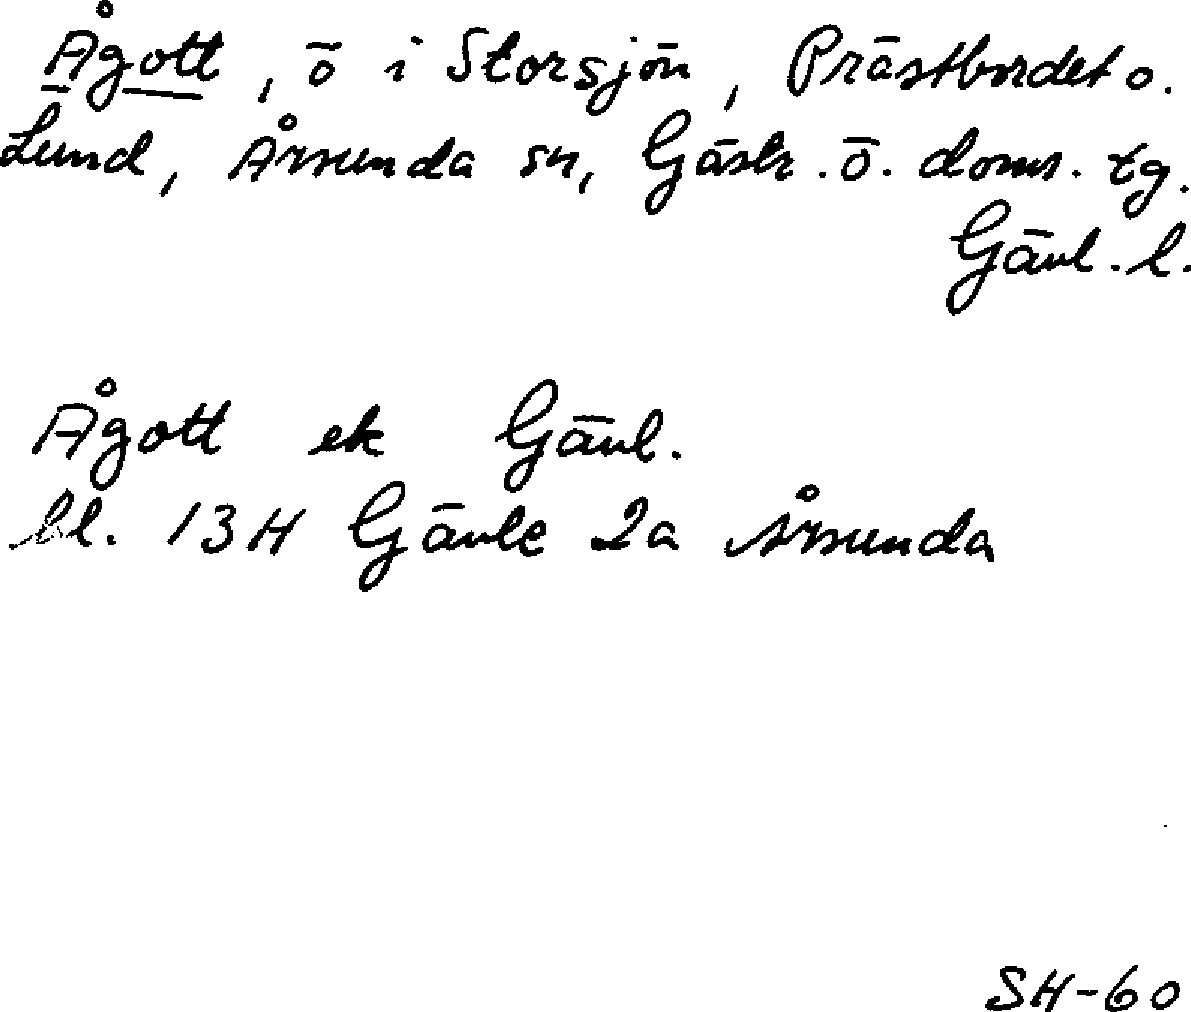 Ågott, ö i Storsjön, Prästbordet o.
Lund, Årsunda sn, Gästr. ö. doms. tg.
Gävl. l.
Ågott ek Gävl.
bl. 13H Gävle 2a Årsunda
SH-60